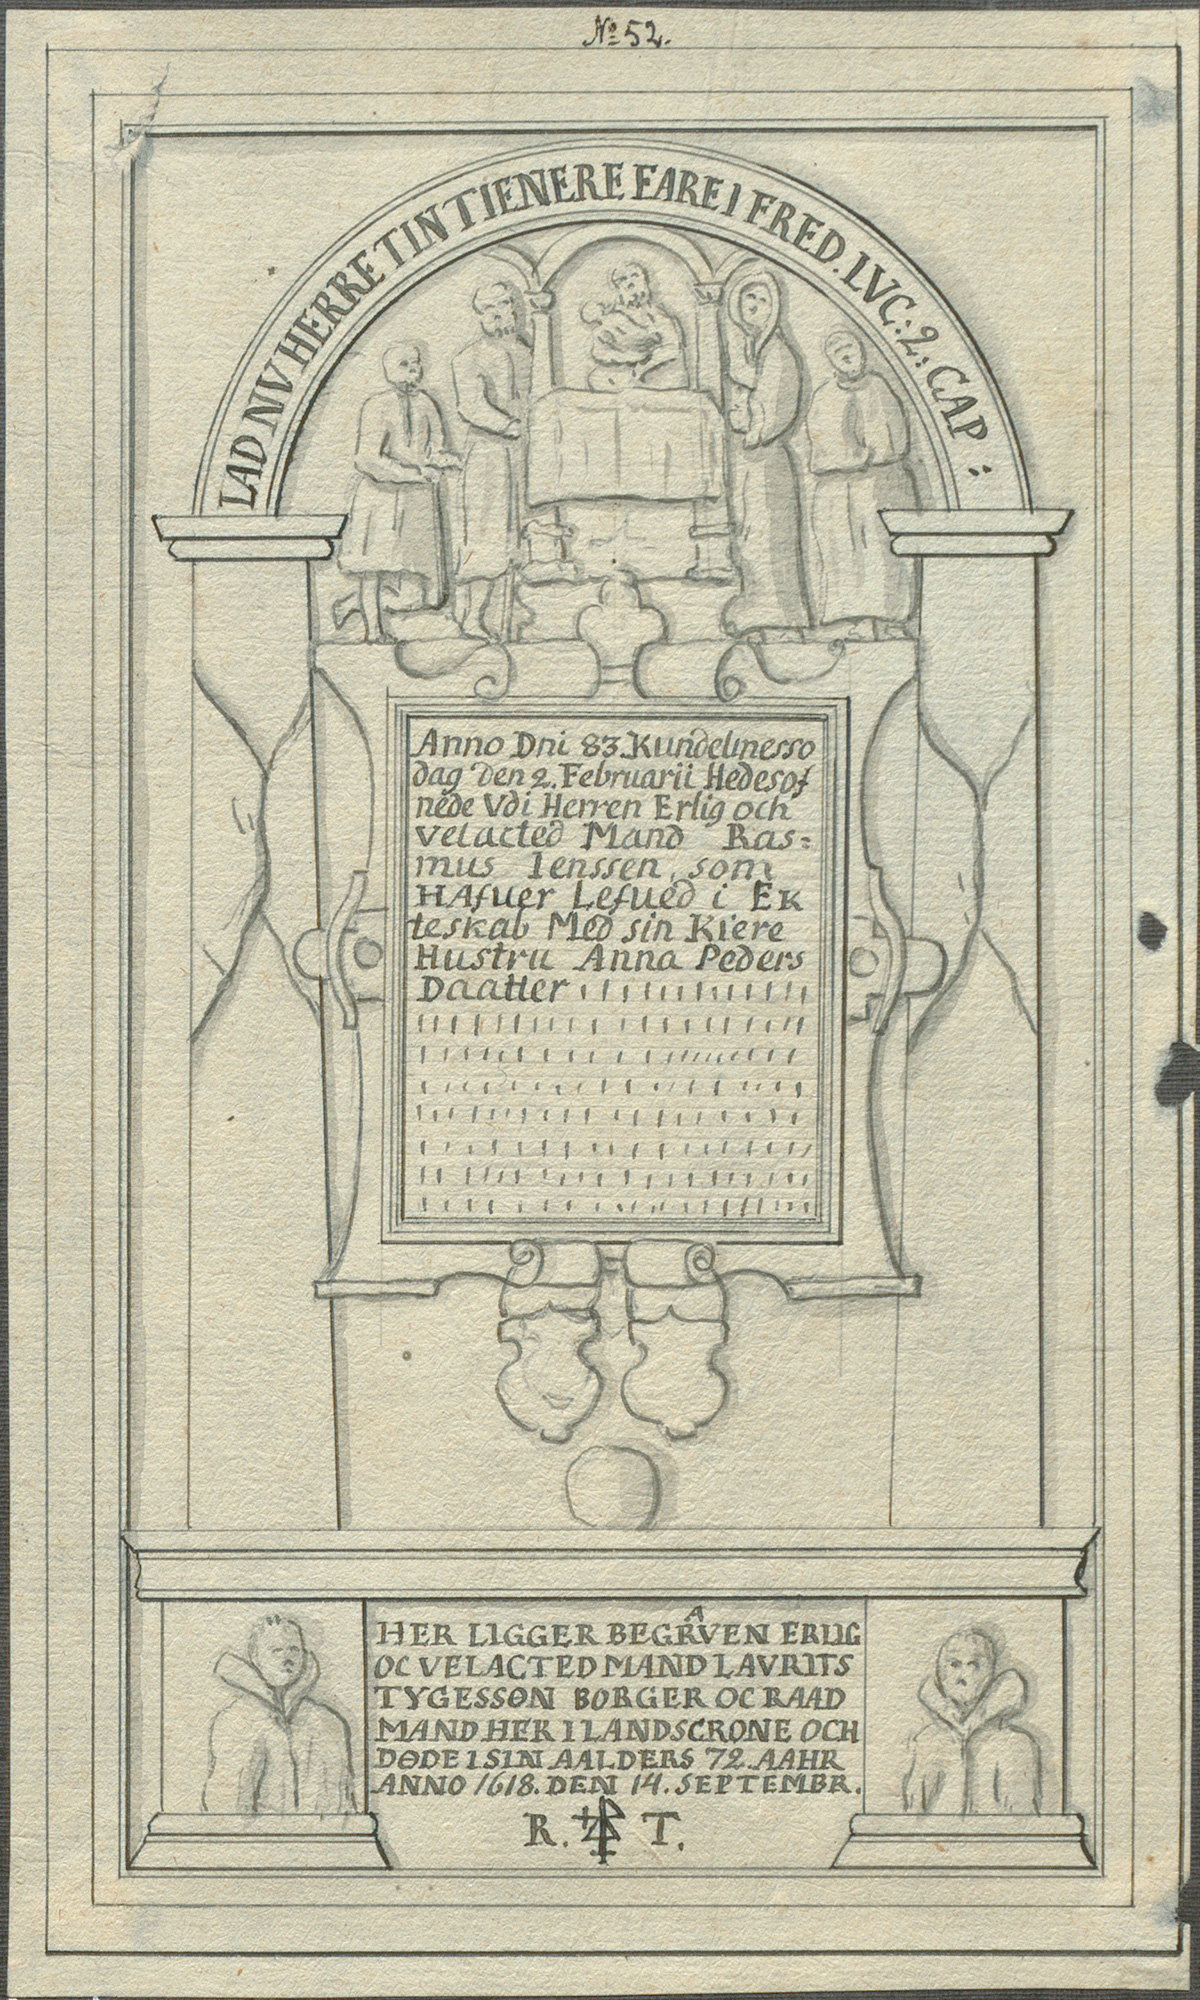 No 52.
LAD NV HERRE TIN TIENERE FARE I FRED. LVC: 2: CAP:
Anno Dni 83. Kundelmesso
dag den 2. Februarii Hedesof
nede Vdi Herren Erlig och
velacted Mand Ras=
mus Ienssen, som
HAfuer Lefued i EK
teskab Med sin Kiere
Hustru Anna Peders
Daatter
HER LIGGER BEGRAVEN ERLIG
OC VELACTED MAND LAVRITS
TYGESSØN BORGER OC RAAD
MAND HER I LANDSCRONE OCH
DØDE I SIN AALDERS 72. AAHR
ANNO 1618. DEN 14. SEPTEMBR.
R. T.